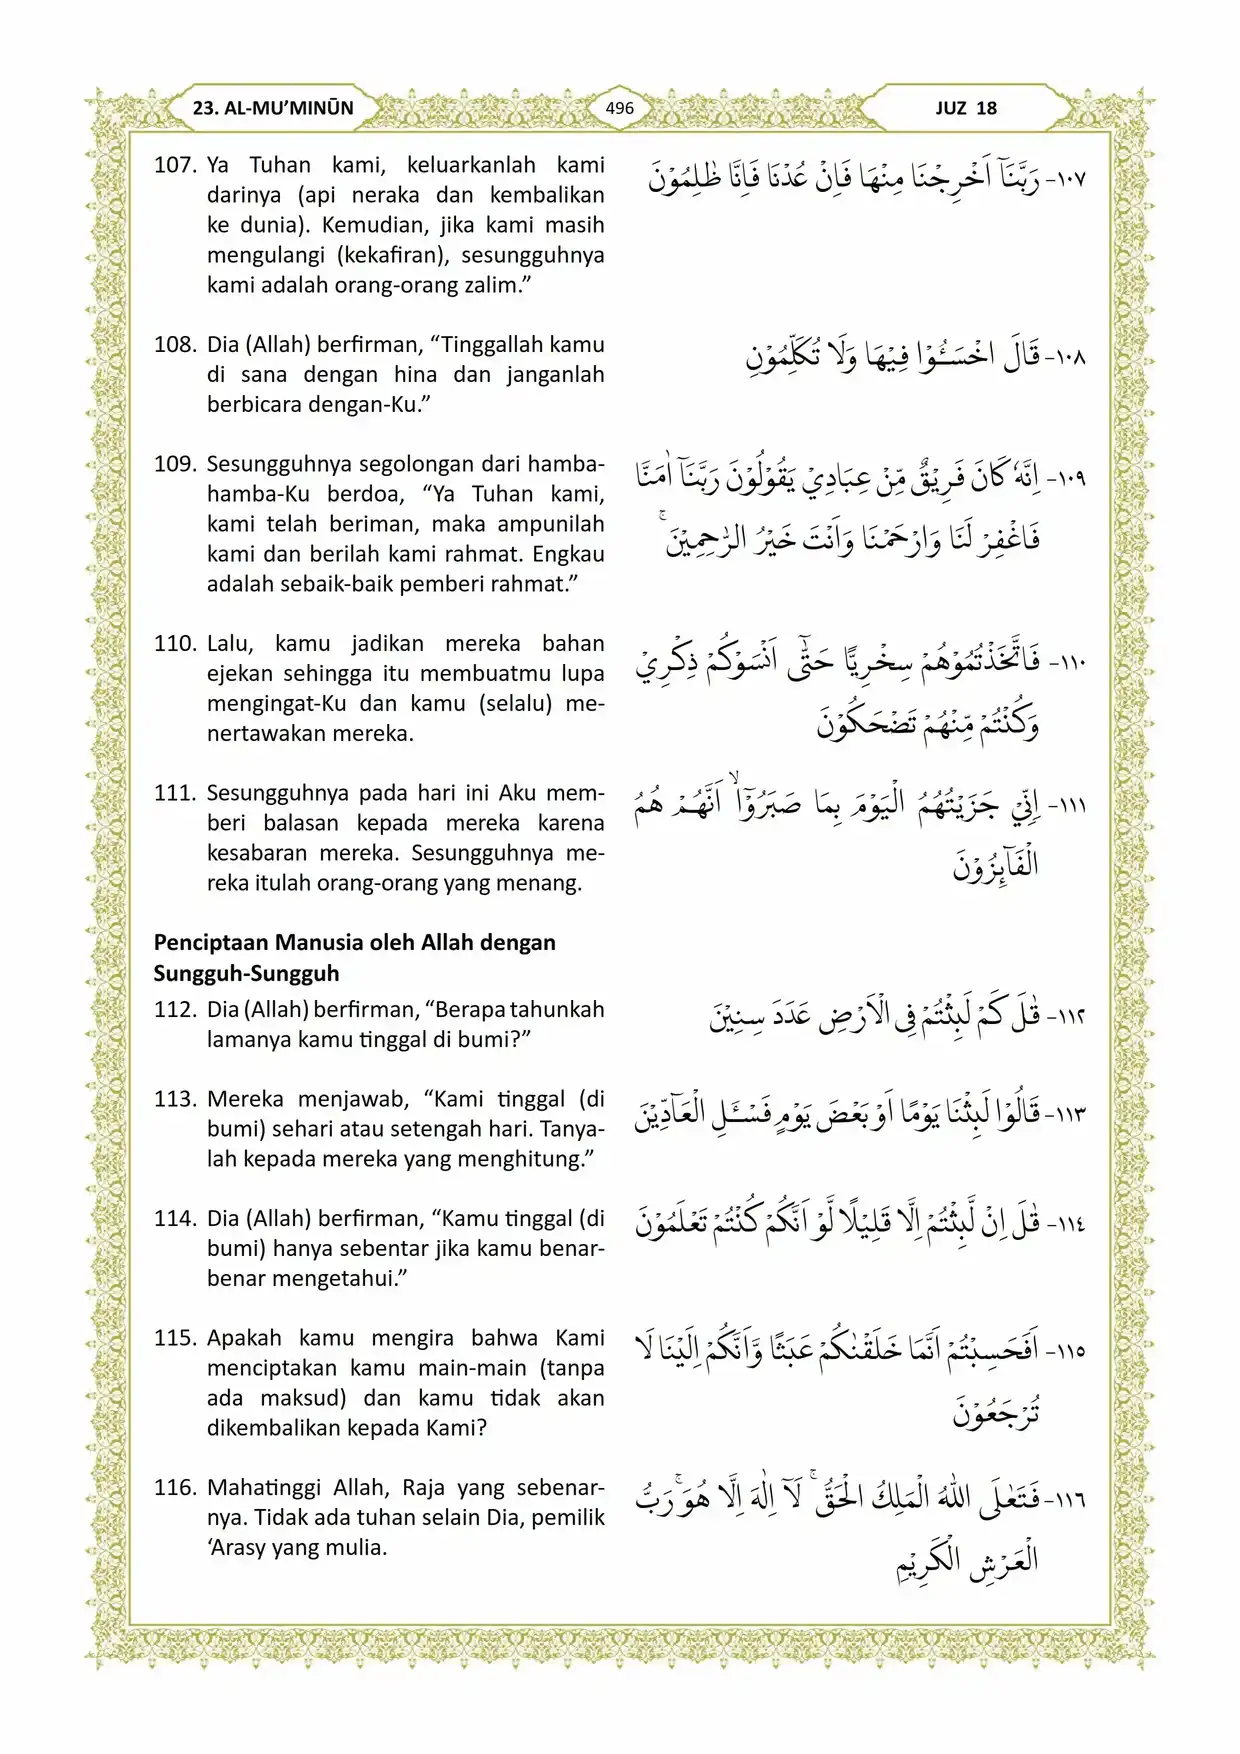 23. AL-MU’MINŪN
496
JUZ 18
107. Ya Tuhan kami, keluarkanlah kami
darinya (api neraka dan kembalikan
ke dunia). Kemudian, jika kami masih
mengulangi (kekafiran), sesungguhnya
kami adalah orang-orang zalim.”
١٠٧- رَبَّنَآ اَخْرِجْنَا مِنْهَا فَاِنْ عُدْنَا فَاِنَّا ظٰلِمُوْنَ
108. Dia (Allah) berfirman, “Tinggallah kamu
di sana dengan hina dan janganlah
berbicara dengan-Ku.”
١٠٨- قَالَ اخْسَـُٔوْا فِيْهَا وَلَا تُكَلِّمُوْنِ
109. Sesungguhnya segolongan dari hamba-
hamba-Ku berdoa, “Ya Tuhan kami,
kami telah beriman, maka ampunilah
kami dan berilah kami rahmat. Engkau
adalah sebaik-baik pemberi rahmat.”
١٠٩- اِنَّهٗ كَانَ فَرِيْقٌ مِّنْ عِبَادِيْ يَقُوْلُوْنَ رَبَّنَآ اٰمَنَّا
فَاغْفِرْ لَنَا وَارْحَمْنَا وَاَنْتَ خَيْرُ الرّٰحِمِيْنَ ۚ
110. Lalu, kamu jadikan mereka bahan
ejekan sehingga itu membuatmu lupa
mengingat-Ku dan kamu (selalu) me-
nertawakan mereka.
١١٠- فَاتَّخَذْتُمُوْهُمْ سِخْرِيًّا حَتّٰٓى اَنْسَوْكُمْ ذِكْرِيْ
وَكُنْتُمْ مِّنْهُمْ تَضْحَكُوْنَ
111. Sesungguhnya pada hari ini Aku mem-
beri balasan kepada mereka karena
kesabaran mereka. Sesungguhnya me-
reka itulah orang-orang yang menang.
١١١- اِنِّيْ جَزَيْتُهُمُ الْيَوْمَ بِمَا صَبَرُوْٓاۙ اَنَّهُمْ هُمُ
الْفَآىِٕزُوْنَ
Penciptaan Manusia oleh Allah dengan
Sungguh-Sungguh
112. Dia (Allah) berfirman, “Berapa tahunkah
lamanya kamu tinggal di bumi?”
١١٢- قٰلَ كَمْ لَبِثْتُمْ فِى الْاَرْضِ عَدَدَ سِنِيْنَ
113. Mereka menjawab, “Kami tinggal (di
bumi) sehari atau setengah hari. Tanya-
lah kepada mereka yang menghitung.”
١١٣- قَالُوْا لَبِثْنَا يَوْمًا اَوْ بَعْضَ يَوْمٍ فَسْـَٔلِ الْعَاۤدِّيْنَ
114. Dia (Allah) berfirman, “Kamu tinggal (di
bumi) hanya sebentar jika kamu benar-
benar mengetahui.”
١١٤- قٰلَ اِنْ لَّبِثْتُمْ اِلَّا قَلِيْلًا لَّوْ اَنَّكُمْ كُنْتُمْ تَعْلَمُوْنَ
115. Apakah kamu mengira bahwa Kami
menciptakan kamu main-main (tanpa
ada maksud) dan kamu tidak akan
dikembalikan kepada Kami?
١١٥- اَفَحَسِبْتُمْ اَنَّمَا خَلَقْنٰكُمْ عَبَثًا وَّاَنَّكُمْ اِلَيْنَا لَا
تُرْجَعُوْنَ
116. Mahatinggi Allah, Raja yang sebenar-
nya. Tidak ada tuhan selain Dia, pemilik
‘Arasy yang mulia.
١١٦- فَتَعٰلَى اللّٰهُ الْمَلِكُ الْحَقُّ ۚ لَآ اِلٰهَ اِلَّا هُوَۚ رَبُّ
الْعَرْشِ الْكَرِيْمِ